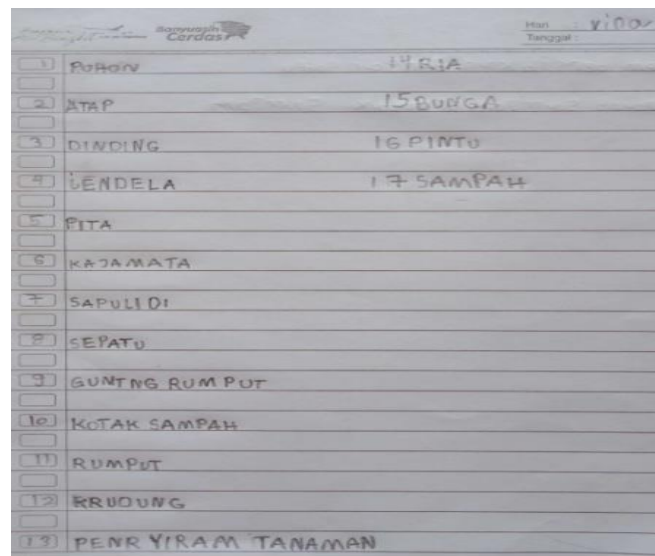 Banyuasin
Cerdas
Hari : vina
Tanggal :
1 POHON
2 ATAP
3 DINDING
4 JENDELA
5 PITA
6 KAJAMATA
7 SAPULIDI
8 SEPATU
9 GUNTNG RUMPUT
10 KOTAK SAMPAH
11 RUMPUT
12 KRUDUNG
13 PENR YIRAM TANAMAN
14 RIA
15 BUNGA
16 PINTU
17 SAMPAH